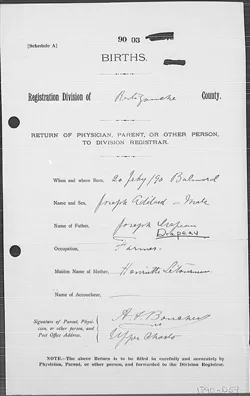 90 03
[Schedule A]
BIRTHS.
Registration Division of Restigouche County.
RETURN OF PHYSICIAN, PARENT, OR OTHER PERSON,
TO DIVISION REGISTRAR.
When and where Born, 20 July/90 Balmoral
Name and Sex, Joseph - Male
Name of Father, Joseph Drapeau
Drapeau
Occupation, Farmer
Maiden Name of Mother, Henriette
Name of Accoucheur,
Signature of Parent, Physi-
cian, or other person, and
Post Office Address.
H A
Upper Charlo
NOTE.—The above Return is to be filled in carefully and accurately by
Physician, Parent, or other person, and forwarded to the Division Registrar.